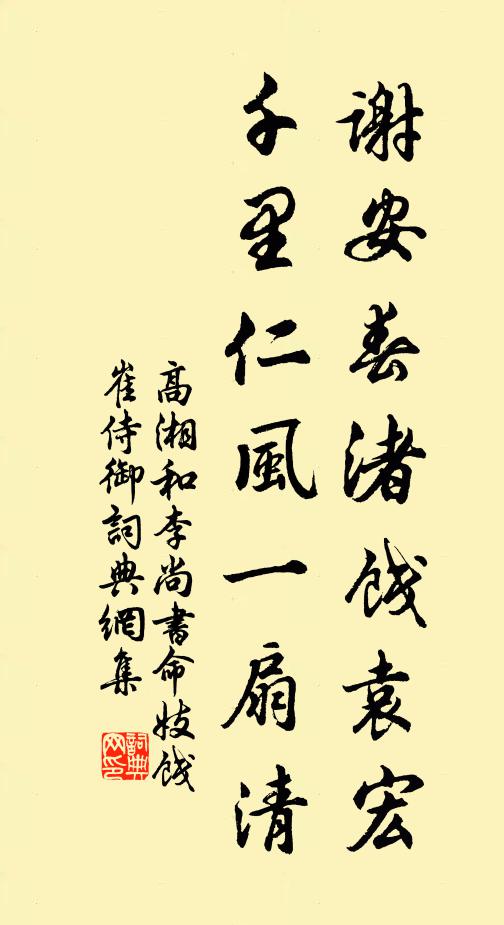 謝安春渚餞袁宏
千里仁風一扇清
高湘和李尚書命妓餞
崔侍御詞典網集
詞典
网印